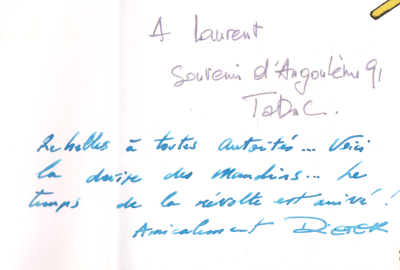 A Laurent
Souvenir d'Angoulême 91
TaDuC.
Rebelles à toutes autorités... Voici
la devise des Mandrins... Le
temps de la révolte est arrivé !
Amicalement DIETER